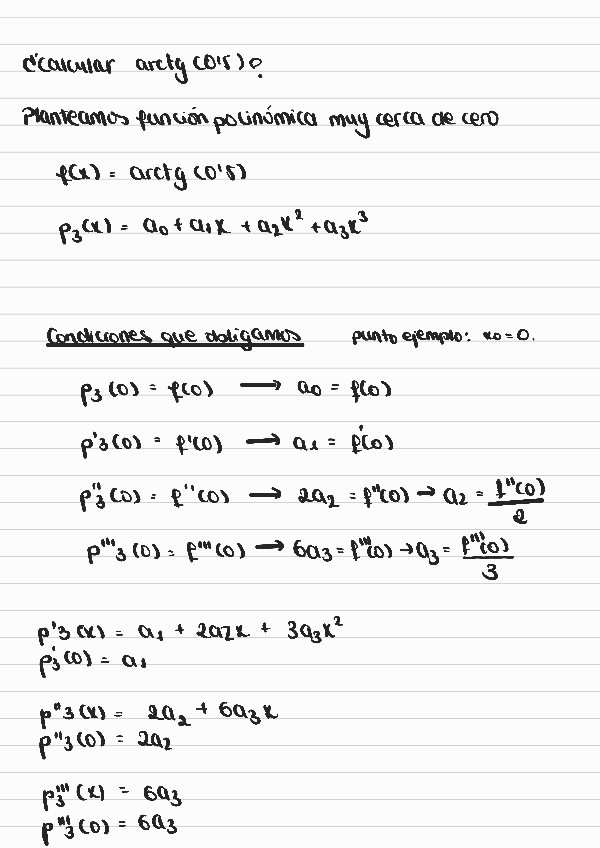 ¿calcular arctg (0'5)?
Planteamos función polinómica muy cerca de cero
f(x) = arctg (0'5)
p₃(x) = a₀ + a₁x + a₂x² + a₃x³
Condiciones que obligamos punto ejemplo: x₀ = 0.
p₃(0) = f(0) → a₀ = f(0)
p'₃(0) = f'(0) → a₁ = f'(0)
p''₃(0) = f''(0) → 2a₂ = f''(0) → a₂ = f''(0)/2
p'''₃(0) = f'''(0) → 6a₃ = f'''(0) → a₃ = f'''(0)/3
p'₃(x) = a₁ + 2a₂x + 3a₃x²
p'₃(0) = a₁
p''₃(x) = 2a₂ + 6a₃x
p''₃(0) = 2a₂
p'''₃(x) = 6a₃
p'''₃(0) = 6a₃